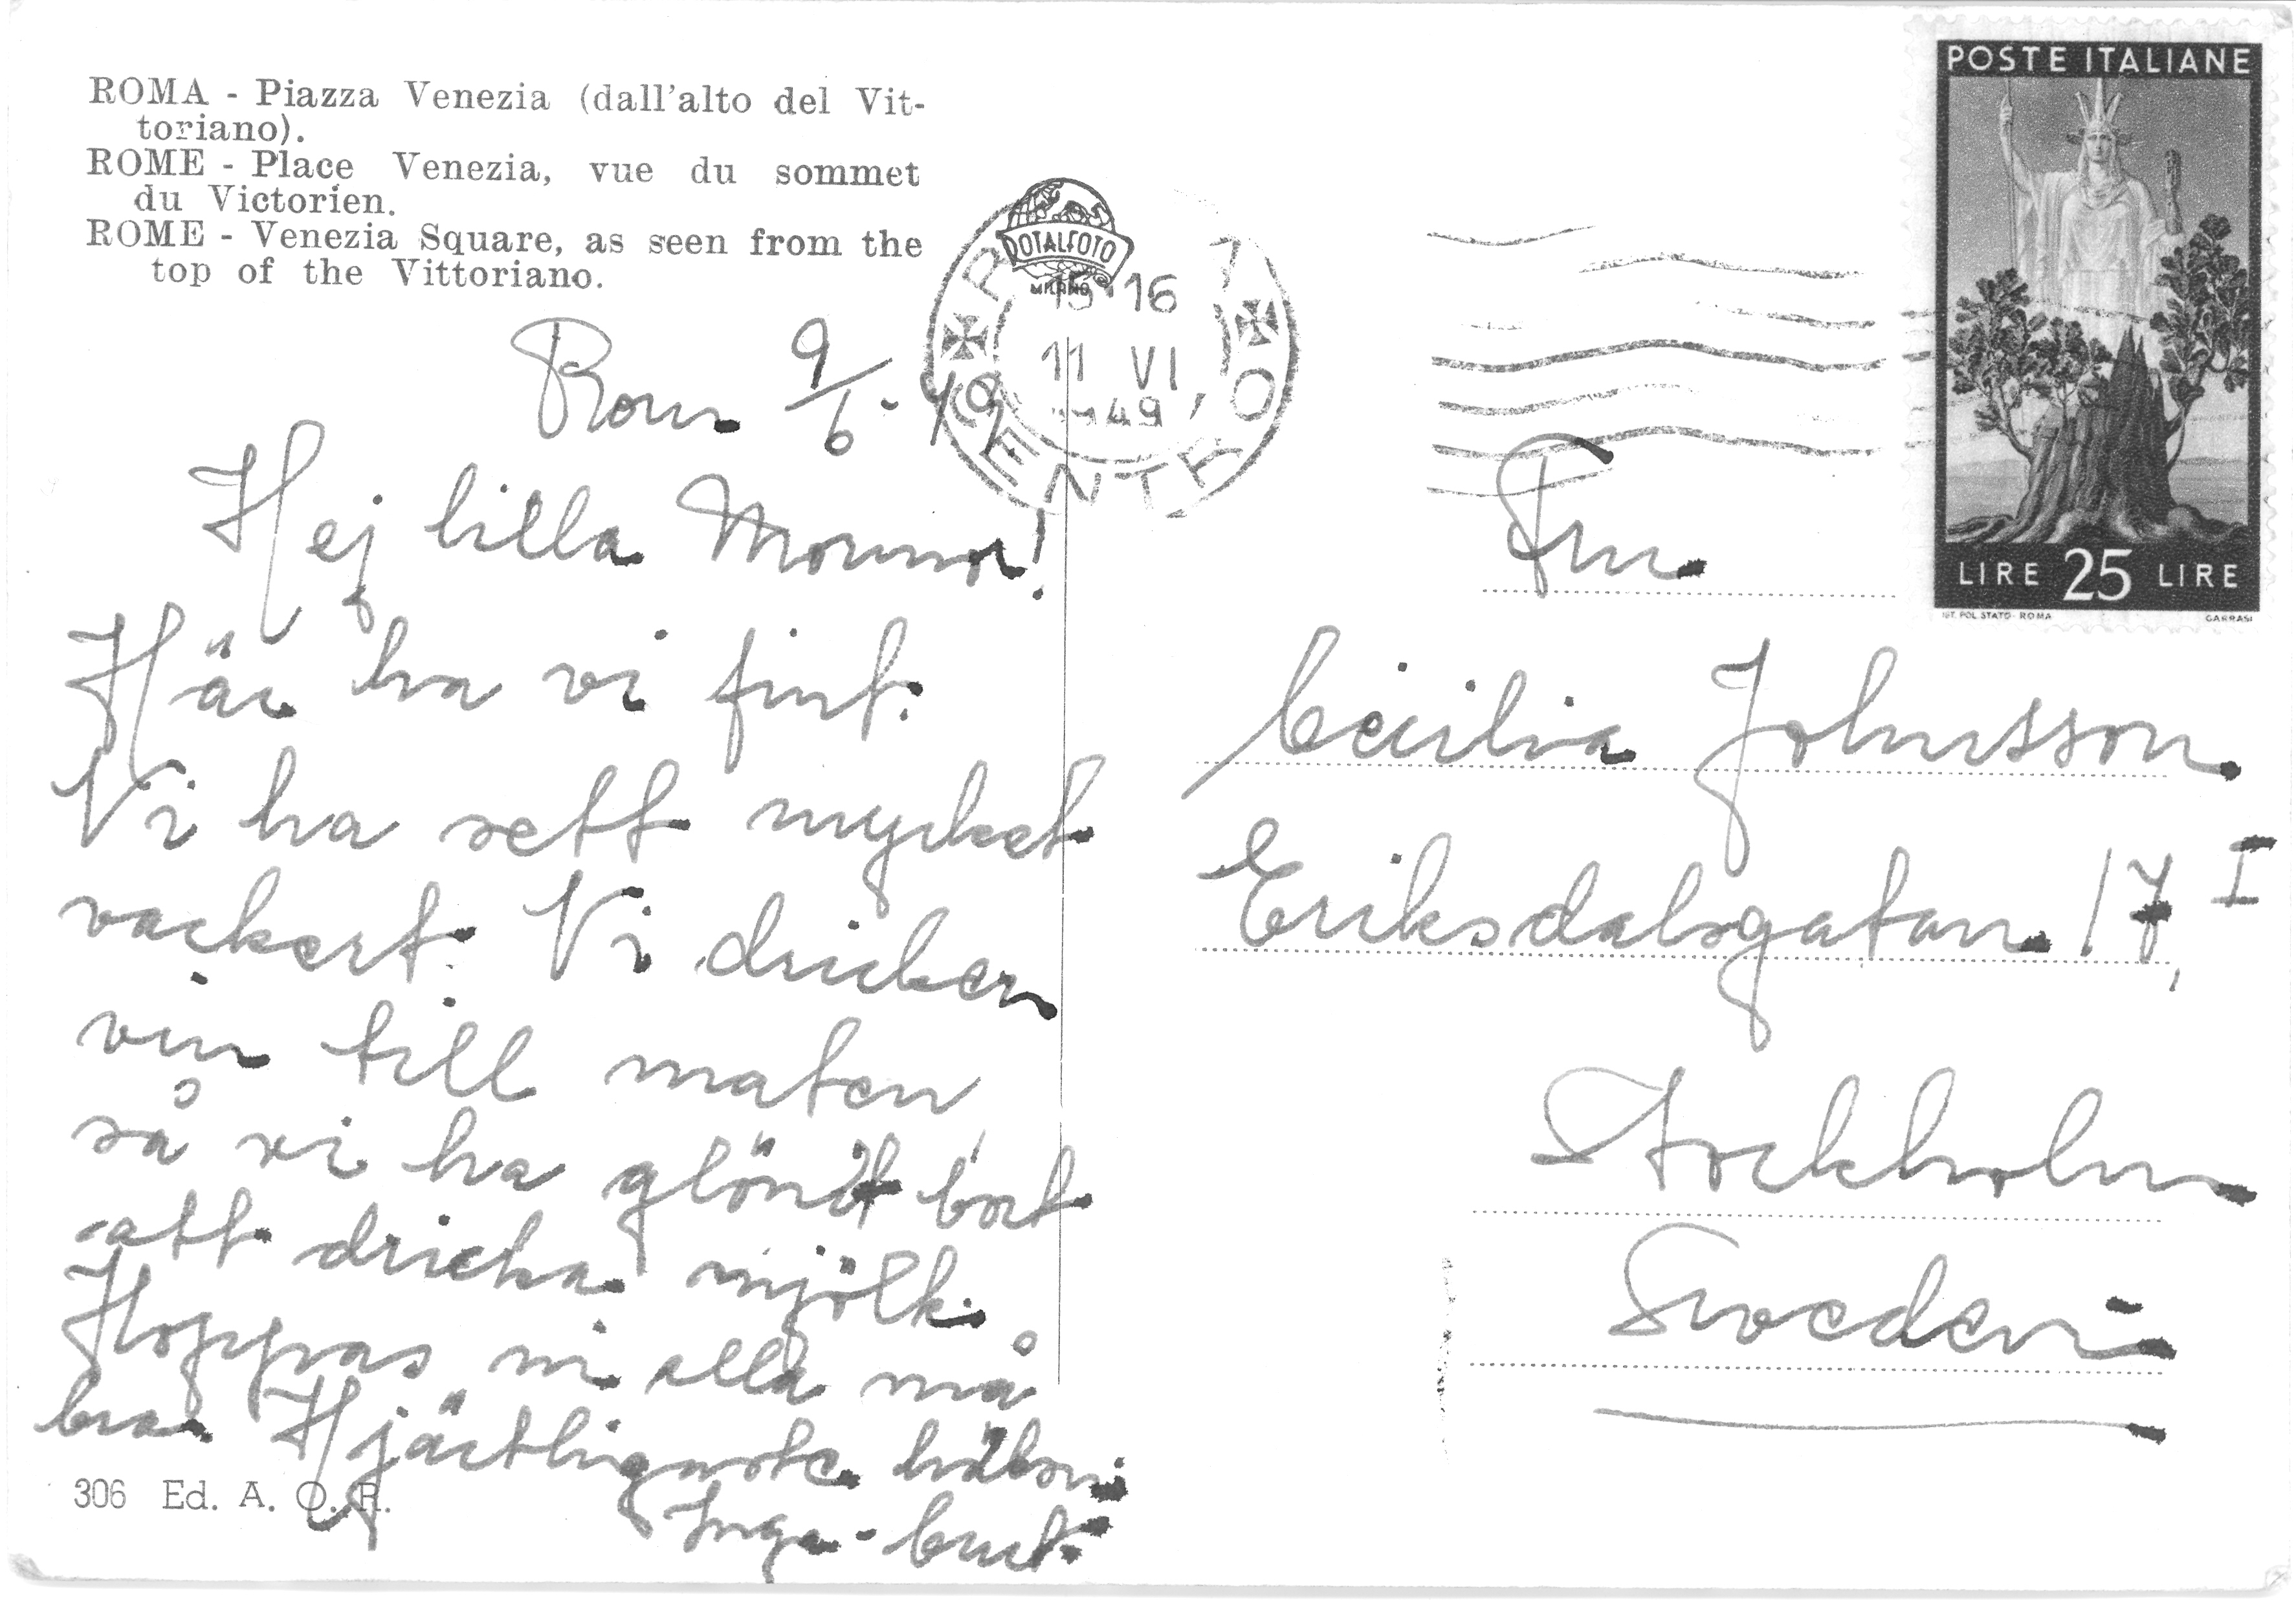 ROMA - Piazza Venezia (dall'alto del Vit-
toriano).
ROME - Place Venezia, vue du sommet
du Victorien.
ROME - Venezia Square, as seen from the
top of the Vittoriano.
ROTALFOTO
MILANO
15-16
11 VI
1949
CENTRO
POSTE ITALIANE
LIRE 25 LIRE
IST. POL. STATO - ROMA
Rom 9/6 - 49.
Hej lilla Mormor!
Här ha vi fint.
Vi ha sett mycket
vackert. Vi dricker
vin till maten
så vi ha glömt bort
att dricka mjölk.
Hoppas ni alla må
bra. Hjärtligaste hälsn.
Inga-Britt.
306 Ed. A. O. R.
Fru
Cecilia Johnsson
Eriksdalsgatan 17, I
Stockholm
Sweden